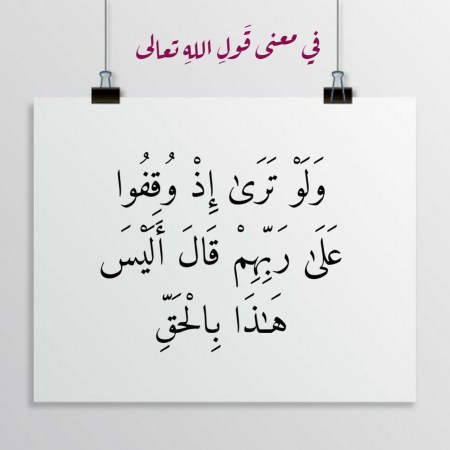 في معنى قَولِ اللهِ تعالى
وَلَوْ تَرَىٰ إِذْ وُقِفُوا
عَلَىٰ رَبِّهِمْ قَالَ أَلَيْسَ
هَٰذَا بِالْحَقِّ